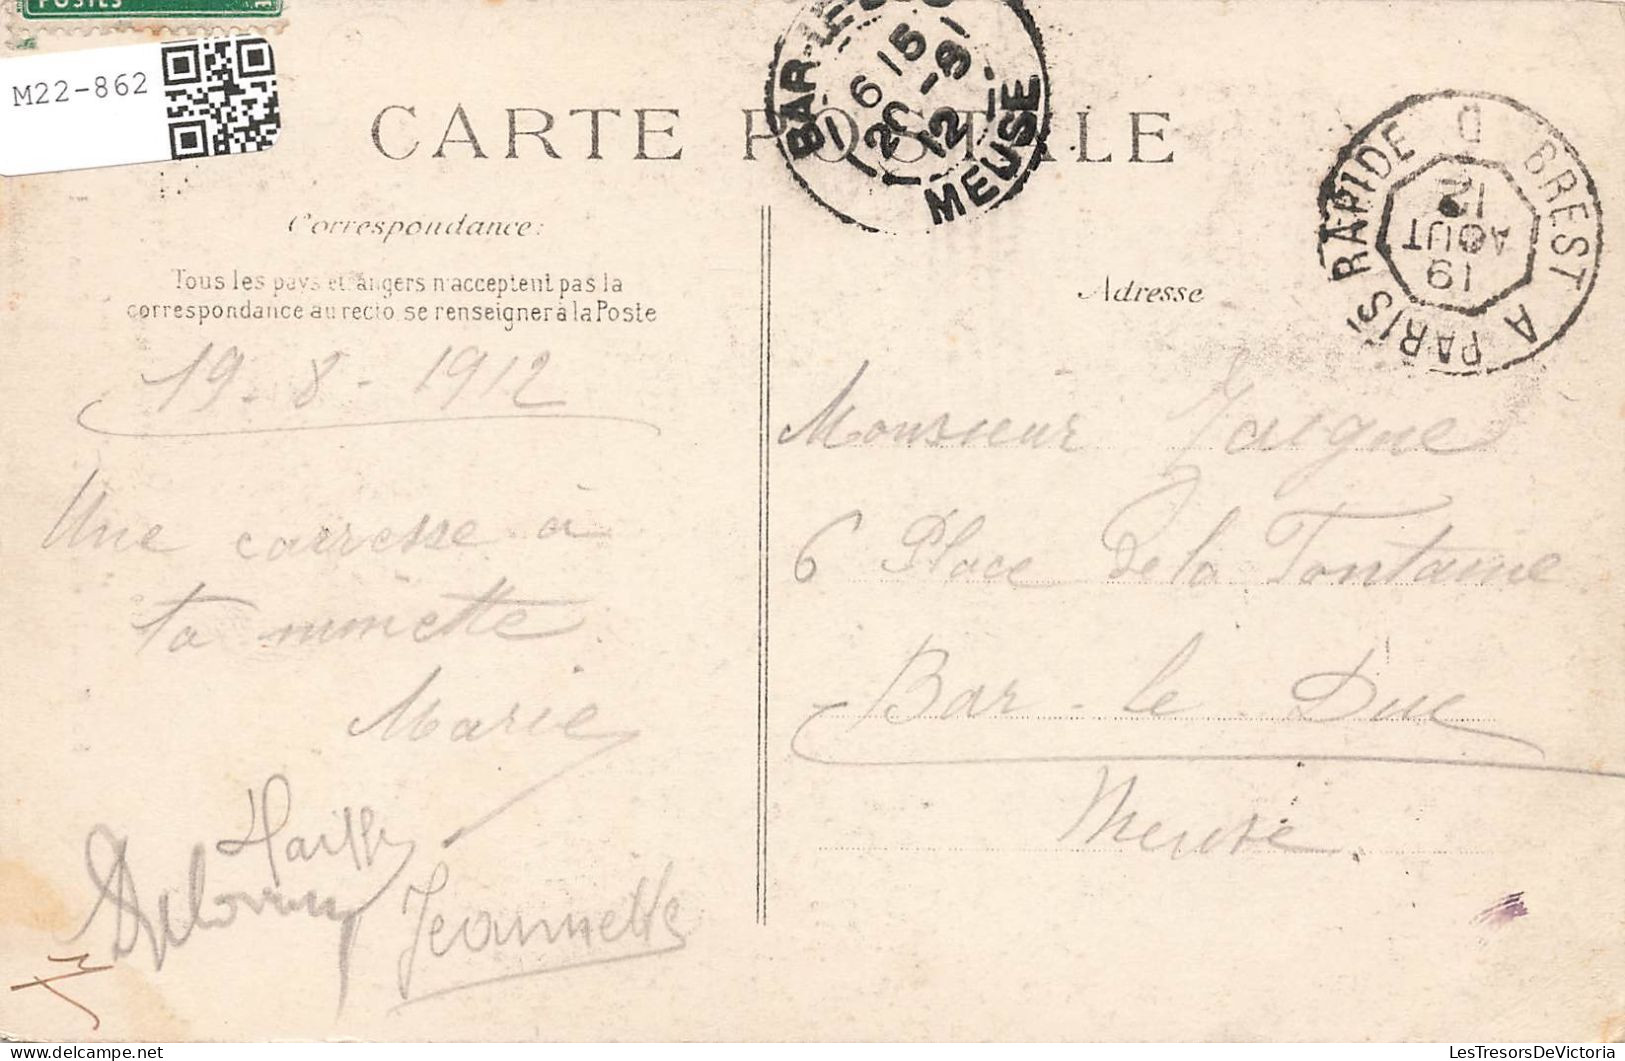 POSTES
M22-862
CARTE POSTALE
BAR-LE-DUC
6 15
20-8
12
MEUSE
BREST A PARIS RAPIDE D
19
AOUT
12
Correspondance:
Tous les pays étrangers n'acceptent pas la
correspondance au recto, se renseigner à la Poste
Adresse
19-8-1912
Une carresse à
ta minette
Marie
Jeannette
Monsieur Taigne
6 Place de la Fontaine
Bar-le-Duc
Meuse.
LesTresorsDeVictoria